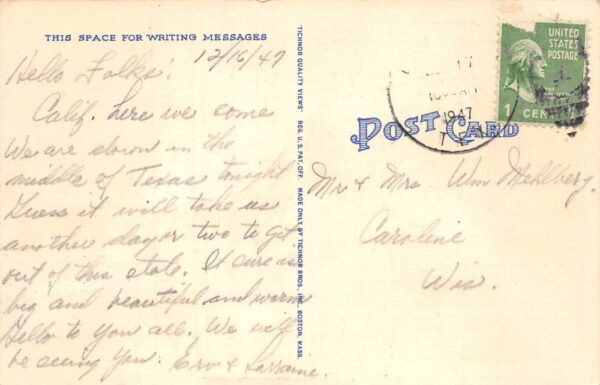 THIS SPACE FOR WRITING MESSAGES
12/16/47
Hello Folks!
Calif. here we come
We are down in the
middle of Texas tonight
Guess it will take us
another day or two to get
out of this state. It sure is
big and beautiful and warm
Hello to you all. We will
be seeing you. Erv & Lorraine.
TICHNOR QUALITY VIEWS
REG. U. S. PAT. OFF.
MADE ONLY BY TICHNOR BROS., INC., BOSTON, MASS.
POST CARD
UNITED
STATES
POSTAGE
1 CENT
17
1947
TEX
Mr & Mrs. Wm Mehlberg.
Caroline
Wis.